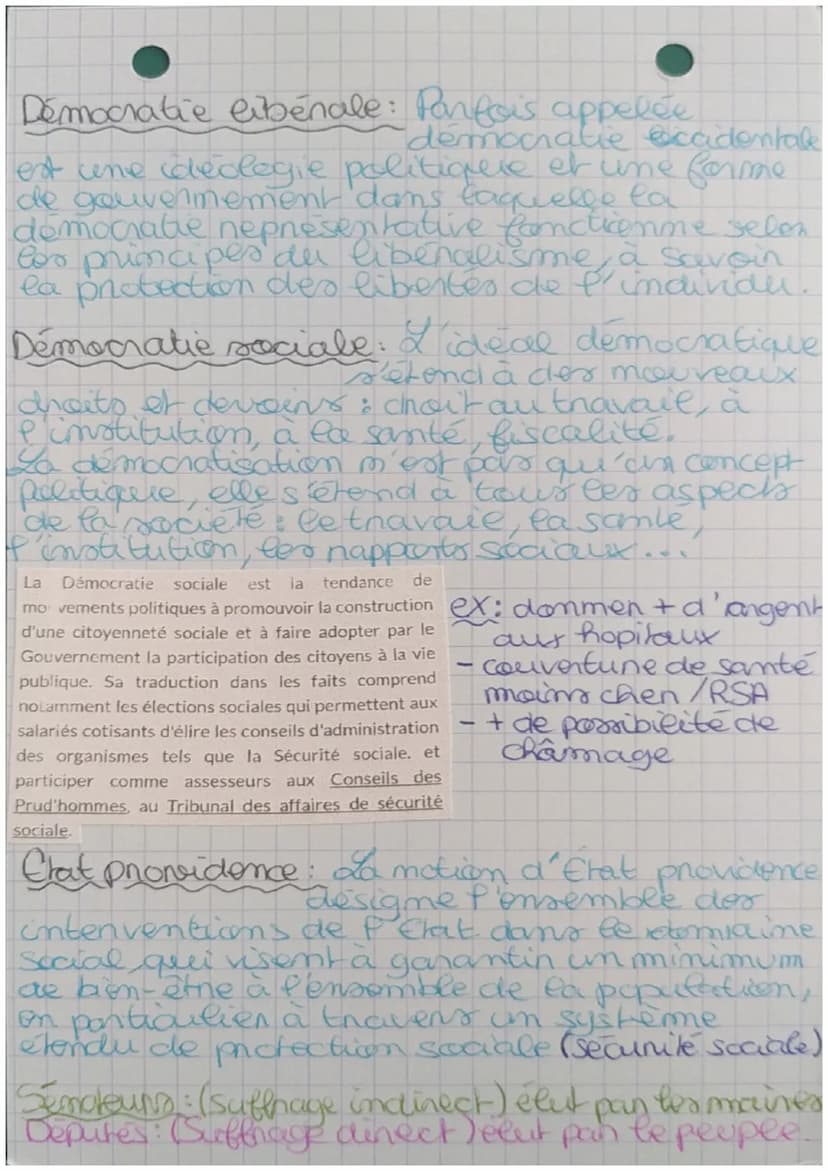 Démocratie libérale : Parfois appelée
démocratie occidentale
est une idéologie politique et une forme
de gouvernement dans laquelle la
démocratie représentative fonctionne selon
les principes du libéralisme, à savoir
la protection des libertés de l'individu.
Démocratie sociale : L'idéal démocratique
s'étend à des nouveaux
droits et devoirs : droit au travail, à
l'institution, à la santé, fiscalité.
La démocratisation n'est pas qu'un concept
politique, elle s'étend à tous les aspects
de la société : le travail, la santé,
l'institution, les rapports sociaux...
La Démocratie sociale est la tendance de
mo vements politiques à promouvoir la construction
d'une citoyenneté sociale et à faire adopter par le
Gouvernement la participation des citoyens à la vie
publique. Sa traduction dans les faits comprend
notamment les élections sociales qui permettent aux
salariés cotisants d'élire les conseils d'administration
des organismes tels que la Sécurité sociale. et
participer comme assesseurs aux Conseils des
Prud'hommes, au Tribunal des affaires de sécurité
sociale.
ex : donner + d'argent
aux hopitaux
- couverture de santé
moins cher / RSA
- + de possibilité de
chômage
Etat providence : La notion d'Etat providence
désigne l'ensemble des
interventions de l'Etat dans le domaine
social, qui visent à garantir un minimum
de bien-être à l'ensemble de la population,
en particulier à travers un système
étendu de protection sociale (sécurité sociale)
Sénateurs : (suffrage indirect) élut par les maires
Députés : (Suffrage direct) élut par le peuple.